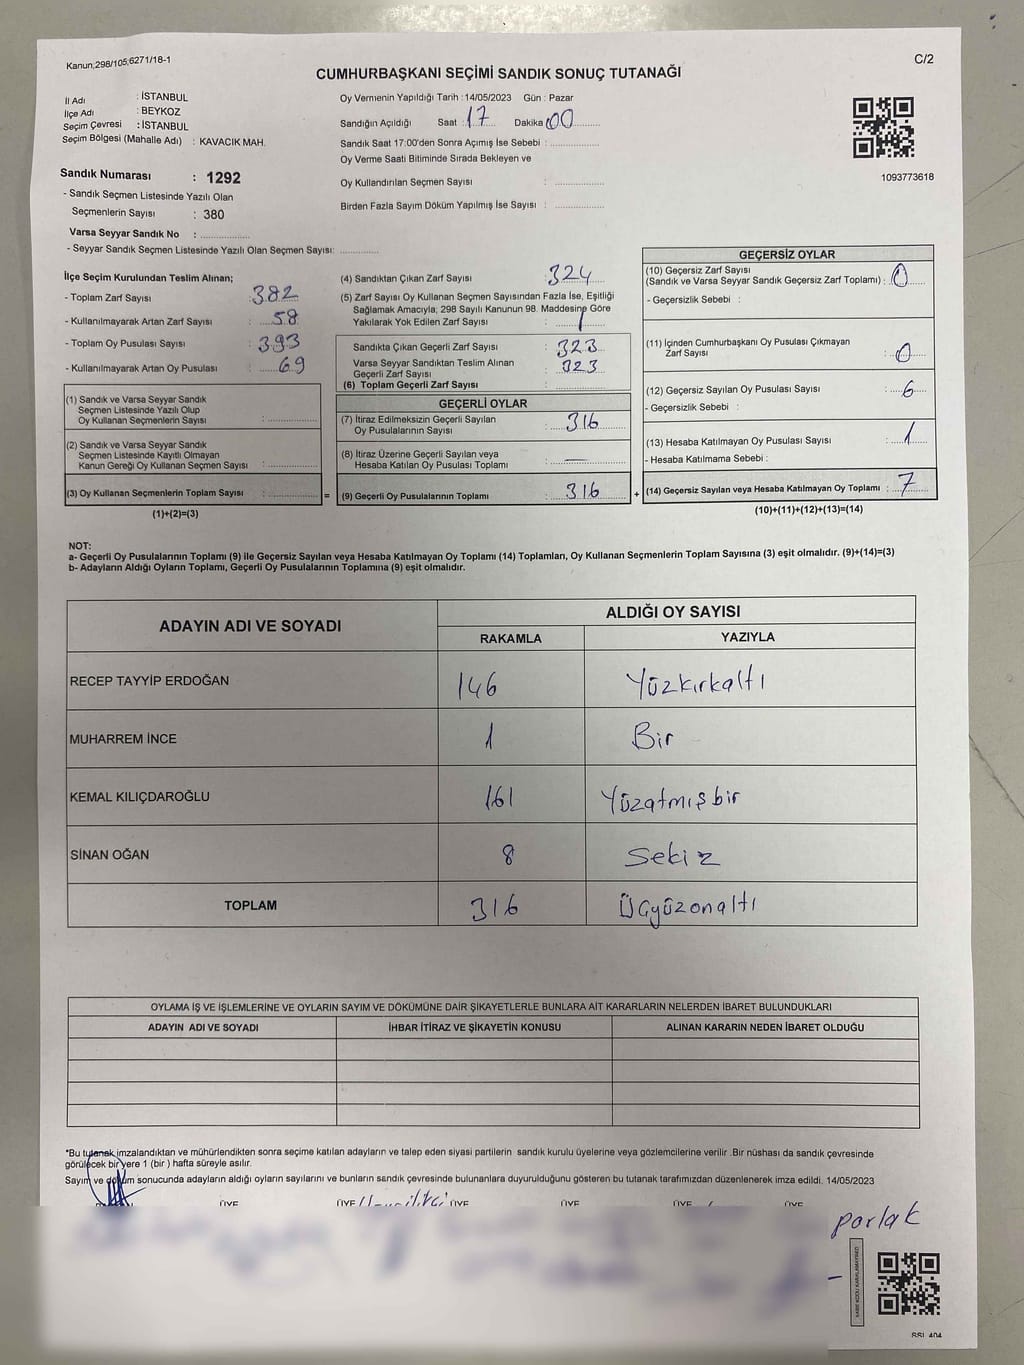 Kanun;298/105,6271/18-1
C/2
CUMHURBAŞKANI SEÇİMİ SANDIK SONUÇ TUTANAĞI
İl Adı : İSTANBUL
İlçe Adı : BEYKOZ
Seçim Çevresi : İSTANBUL
Seçim Bölgesi (Mahalle Adı) : KAVACIK MAH.
Oy Vermenin Yapıldığı Tarih : 14/05/2023 Gün : Pazar
Sandığın Açıldığı Saat : 17 Dakika : 00
Sandık Saat 17:00'den Sonra Açımış İse Sebebi :
Oy Verme Saati Bitiminde Sırada Bekleyen ve
Oy Kullandırılan Seçmen Sayısı :
Birden Fazla Sayım Döküm Yapılmış İse Sayısı :
1093773618
Sandık Numarası : 1292
- Sandık Seçmen Listesinde Yazılı Olan
Seçmenlerin Sayısı : 380
Varsa Seyyar Sandık No :
- Seyyar Sandık Seçmen Listesinde Yazılı Olan Seçmen Sayısı:
İlçe Seçim Kurulundan Teslim Alınan;
- Toplam Zarf Sayısı : 382
- Kullanılmayarak Artan Zarf Sayısı : 58
- Toplam Oy Pusulası Sayısı : 393
- Kullanılmayarak Artan Oy Pusulası : 69
(1) Sandık ve Varsa Seyyar Sandık
Seçmen Listesinde Yazılı Olup
Oy Kullanan Seçmenlerin Sayısı :
(2) Sandık ve Varsa Seyyar Sandık
Seçmen Listesinde Kayıtlı Olmayan
Kanun Gereği Oy Kullanan Seçmen Sayısı :
(3) Oy Kullanan Seçmenlerin Toplam Sayısı :
(1)+(2)=(3)
(4) Sandıktan Çıkan Zarf Sayısı : 324
(5) Zarf Sayısı Oy Kullanan Seçmen Sayısından Fazla İse, Eşitliği
Sağlamak Amacıyla; 298 Sayılı Kanunun 98. Maddesine Göre
Yakılarak Yok Edilen Zarf Sayısı : 1
Sandıkta Çıkan Geçerli Zarf Sayısı : 323
Varsa Seyyar Sandıktan Teslim Alınan
Geçerli Zarf Sayısı : 323
(6) Toplam Geçerli Zarf Sayısı :
GEÇERLİ OYLAR
(7) İtiraz Edilmeksizin Geçerli Sayılan
Oy Pusulalarının Sayısı : 316
(8) İtiraz Üzerine Geçerli Sayılan veya
Hesaba Katılan Oy Pusulası Toplamı : —
= (9) Geçerli Oy Pusulalarının Toplamı : 316 +
GEÇERSİZ OYLAR
(10) Geçersiz Zarf Sayısı
(Sandık ve Varsa Seyyar Sandık Geçersiz Zarf Toplamı) : 0
- Geçersizlik Sebebi :
(11) İçinden Cumhurbaşkanı Oy Pusulası Çıkmayan
Zarf Sayısı : 0
(12) Geçersiz Sayılan Oy Pusulası Sayısı : 6
- Geçersizlik Sebebi :
(13) Hesaba Katılmayan Oy Pusulası Sayısı : 1
- Hesaba Katılmama Sebebi :
(14) Geçersiz Sayılan veya Hesaba Katılmayan Oy Toplamı : 7
(10)+(11)+(12)+(13)=(14)
NOT:
a- Geçerli Oy Pusulalarının Toplamı (9) ile Geçersiz Sayılan veya Hesaba Katılmayan Oy Toplamı (14) Toplamları, Oy Kullanan Seçmenlerin Toplam Sayısına (3) eşit olmalıdır. (9)+(14)=(3)
b- Adayların Aldığı Oyların Toplamı, Geçerli Oy Pusulalarının Toplamına (9) eşit olmalıdır.
ADAYIN ADI VE SOYADI ALDIĞI OY SAYISI
RAKAMLA YAZIYLA
RECEP TAYYİP ERDOĞAN 146 Yüzkırkaltı
MUHARREM İNCE 1 Bir
KEMAL KILIÇDAROĞLU 161 Yüzatmışbir
SİNAN OĞAN 8 Sekiz
TOPLAM 316 Üçyüzonaltı
OYLAMA İŞ VE İŞLEMLERİNE VE OYLARIN SAYIM VE DÖKÜMÜNE DAİR ŞİKAYETLERLE BUNLARA AİT KARARLARIN NELERDEN İBARET BULUNDUKLARI
ADAYIN ADI VE SOYADI İHBAR İTİRAZ VE ŞİKAYETİN KONUSU ALINAN KARARIN NEDEN İBARET OLDUĞU
*Bu tutanak imzalandıktan ve mühürlendikten sonra seçime katılan adayların ve talep eden siyasi partilerin sandık kurulu üyelerine veya gözlemcilerine verilir .Bir nüshası da sandık çevresinde
görülecek bir yere 1 (bir ) hafta süreyle asılır.
Sayım ve döküm sonucunda adayların aldığı oyların sayılarını ve bunların sandık çevresinde bulunanlara duyurulduğunu gösteren bu tutanak tarafımızdan düzenlenerek imza edildi. 14/05/2023
ÜYE ÜYE ÜYE ÜYE ÜYE ÜYE
parlak